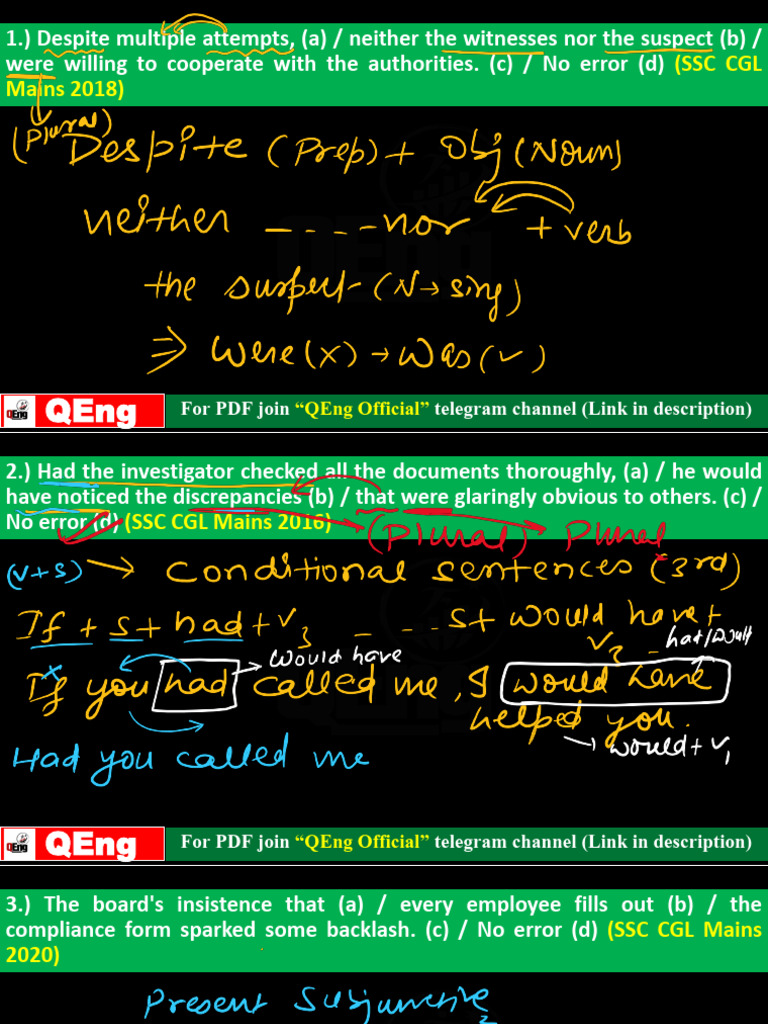 1.) Despite multiple attempts, (a) / neither the witnesses nor the suspect (b) /
were willing to cooperate with the authorities. (c) / No error (d) (SSC CGL
Mains 2018)
(Plural)
Despite (Prep) + Obj (Noun)
neither ----nor + verb
the suspect (N→sing)
⇒ Were(X) → Was(✓)
QEng QEng For PDF join “QEng Official” telegram channel (Link in description)
2.) Had the investigator checked all the documents thoroughly, (a) / he would
have noticed the discrepancies (b) / that were glaringly obvious to others. (c) /
No error (d) (SSC CGL Mains 2016)
(Plural) Plural
(V+S) → Conditional sentences (3rd)
If + S + had + V3 - - - S + would have +
V3
would have
If you had called me, I would have
helped you.
→ would + V1
Had you called me
QEng QEng For PDF join “QEng Official” telegram channel (Link in description)
3.) The board's insistence that (a) / every employee fills out (b) / the
compliance form sparked some backlash. (c) / No error (d) (SSC CGL Mains
2020)
Present Subjunctive